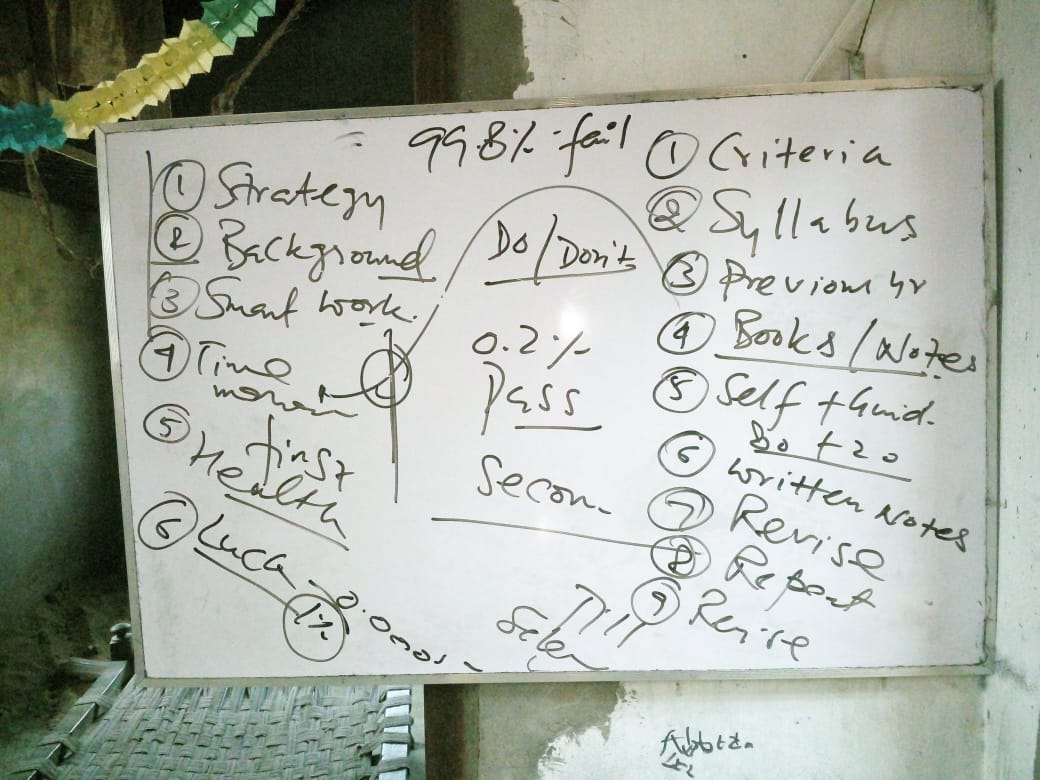 99.8% fail
① Strategy
② Background
③ Smart work.
④ Time
⑤ first
Health
⑥ Luck
1%
Do/Don't
0.2%
Pass
Secon
① Criteria
② Syllabus
③ Previous yr
④ Books/Notes
⑤ Self + Guid.
80 + 20
⑥ Written Notes
⑦ Revise
⑧ Repeat
⑨ Revise